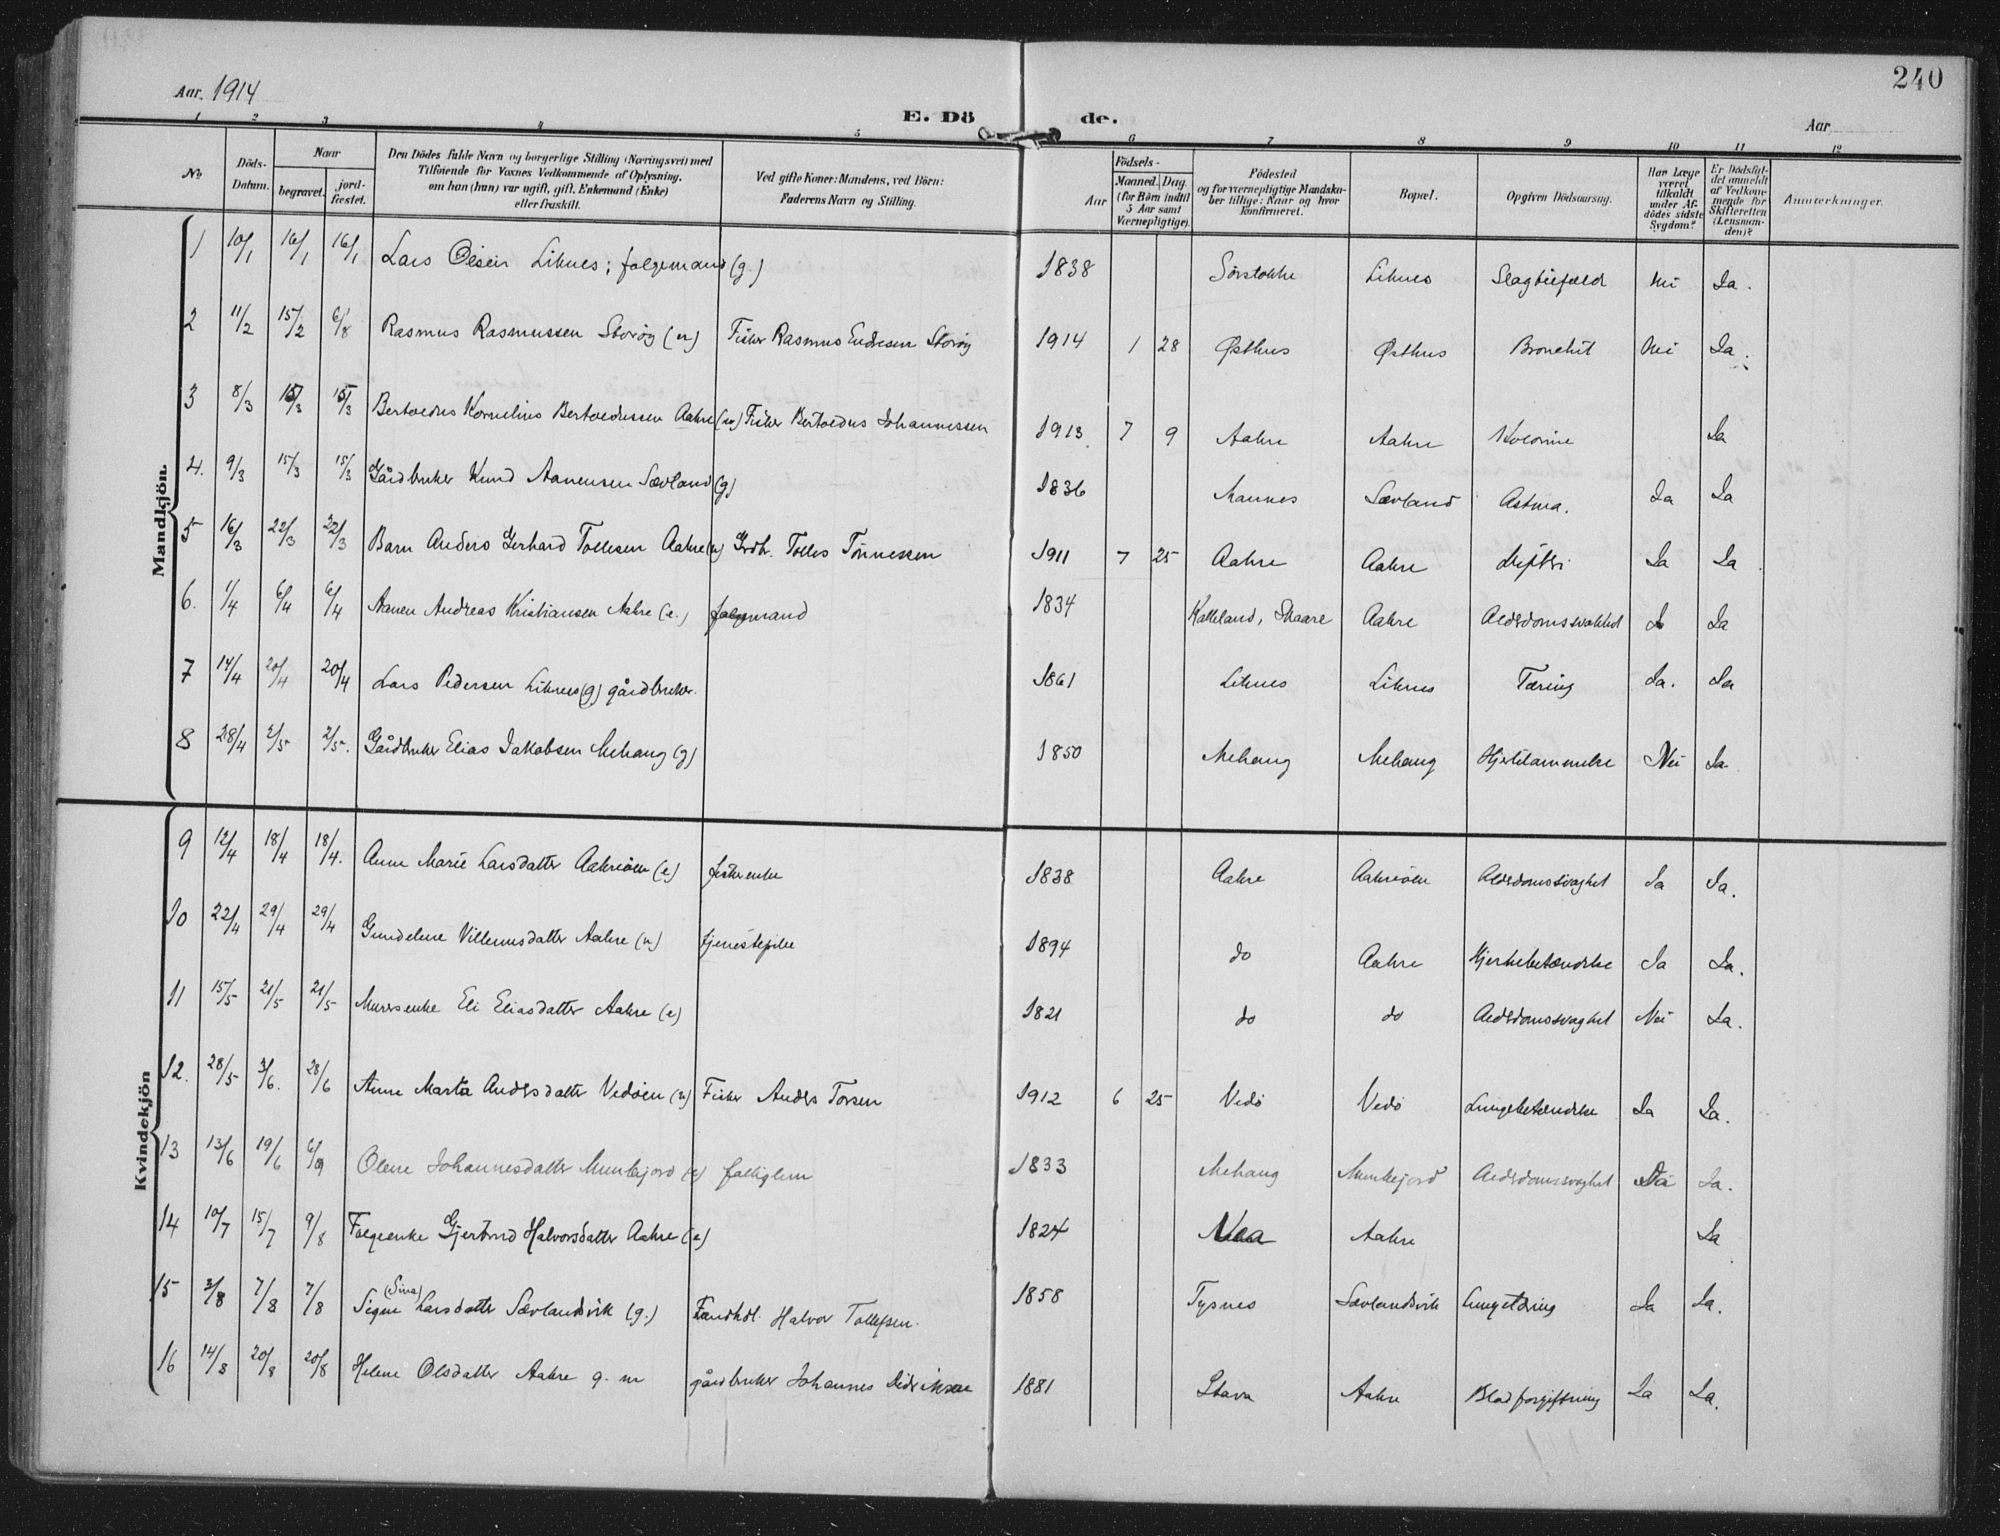 240
Aar. 1914
E. Dö de.
Aar
1 2 3 4 5 6 7 8 9 10 11 12
No
Döds-Datum.
Naar
begravet.
jord-fæstet.
Den Dödes fulde Navn og borgerlige Stilling (Næringsvei) med
Tilföiende for Voxnes Vedkommende af Oplysning,
om han (hun) var ugift, gift, Enkemand (Enke)
eller fraskilt.
Ved gifte Koner: Mandens, ved Börn:
Faderens Navn og Stilling.
Födsels-
Aar
Maaned. Dag.
(for Börn indtil
5 Aar samt
Værnepligtige).
Födested
og for værnepligtige Mandska-
ber tillige: Naar og hvor
konfirmeret.
Bopæl.
Opgiven Dödsaarsag.
Har Læge
været
tilkaldt
under Af-
dödes sidste
Sygdom?
Er Dödsfal-
det anmeldt
af Vedkom-
mende for
Skifteretten
(Lensman-
den)?
Anmærkninger.
Mandkjön.
1 10/1 16/1 16/1 Lars Olsen Liknes; folgemand (g.) 1838 Sörstokke Liknes Slagtilfæld Nei Ja.
2 11/2 15/2 6/8 Rasmus Rasmussen Storöy (u) Fisker Rasmus Endresen Storöy 1914 1 28 Østhus Østhus Bronchit Nei Ja.
3 8/3 15/3 15/3 Bertoldus Kornelius Bertoldussen Aakre (u) Fisker Bertoldus Johannessen 1913 7 9 Aakre Aakre Kolerine Ja
4. 9/3 15/3 15/3 Gårdbruker Knud Aanensen Sævland (g) 1836 Mannes Sævland Astma. Ja Ja
5 16/3 22/3 22/3 Barn Anders Gerhard Tollesen Aakre (u) Grdbr. Tolles Tönnessen 1911 7 25 Aakre Aakre difteri Ja Ja
6. 1/4 6/4 6/4 Aanen Andreas Kristiansen Aakre (e.) folgemand 1834 Kalleland, Skaare Aakre Alderdomssvakhet Ja
7 14/4 20/4 20/4 Lars Pedersen Liknes (g) gårdbruker. 1861 Liknes Liknes Tæring Ja. Ja
8 28/4 2/5 2/5. Gårdbruker Elias Jakobsen Mehaug (g) 1850 Mehaug Mehaug Hjertelammelse Nei Ja
Kvindekjön
9 12/4 18/4 18/4. Anne Marie Larsdatter Aakreöen (e) fiskerenke 1838 Aakre Aakreöen Alderdomssvaghet Ja Ja.
10 22/4 29/4 29/4 Gundeline Villumsdatter Aakre (u) tjenestepike 1894 do Aakre Hjertebetændelse Ja Ja.
11 15/5 21/5 21/5 Murersenke Eli Eliasdatter Aakre (e) 1821 do do Alderdomssvaghet Nei Ja.
12. 28/5 3/6. 28/6 Anne Marta Andersdatter Vedöen (u) Fisker Anders Torsen 1912 6 25 Vedö Vedö Lungebetændelse Ja Ja.
13 13/6 19/6 6/9 Olene Johannesdatter Munkejord (e) fattiglem 1833 Mehaug Munkejord Alderdomssvaghet Ja.
14 10/7 15/7 9/8 Folgeenke Gjertrud Halvorsdatter Aakre (e) 1824 Nea Aakre Ja
15 3/8 7/8 7/8 Signe (Sina) Larsdatter Sævlandsvik (g.) Landhdl. Halvor Tollefsen. 1858 Tysnes Sævlandsvik Lungetæring Ja Ja.
16 14/8 20/8 20/8 Helene Olsdatter Aakre g. m gårdbruker Johannes Didriksen 1881 Stava Aakre Blodforgiftning Ja Ja.